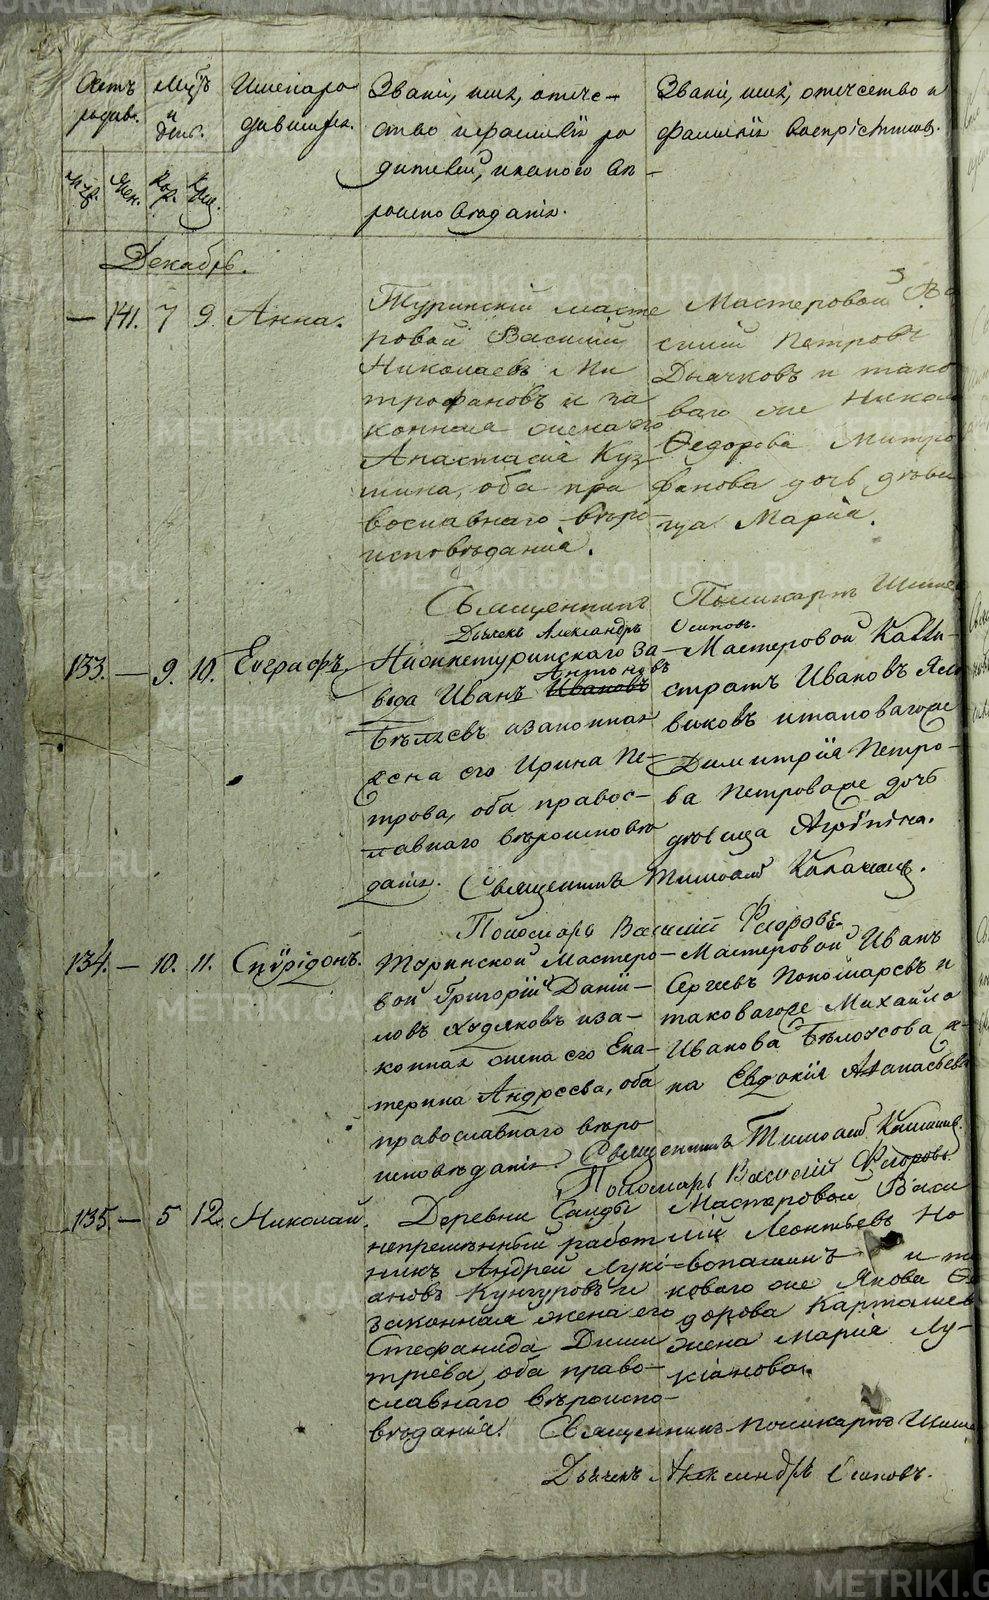 Счетъ родив.
Мцъ и день.
Имена родившихся.
Званіе, имя, отчество и фамилія родителей, и какого вѣроисповѣданія.
Званіе, имя, отчество и фамилія воспріемниковъ.
Муж. Жен. Рож. Крещ.
Декабрь.
— 141. 7 9. Анна.
Туринскій масте
ровой Василій
Николаевъ Ми
трофановъ и за
конная жена его
Анастасія Куз
мина, оба пра
вославнаго вѣро
исповѣданія.
Мастеровой Ва
силій Петровъ
Дьячковъ и тако
ваго же Никол
Ѳедорова Митро
фанова дочь дѣви
ца Марія.
Священникъ Поликарпъ
Дьячекъ Александръ Осиповъ.
133. — 9. 10. Евграфъ
Нижнетуринскаго за-
вода Иванъ Ивановъ Антоновъ
Бѣляевъ и законная
жена его Ирина Пе-
трова, оба правос-
лавнаго вѣроисповѣ
данія.
Мастеровой Калли-
стратъ Ивановъ
виковъ и таковагоже
Димитрія Петро-
ва Петровагоже дочь
дѣвица Агрипина.
Священникъ Тимоѳей
Пономарь Василій Ѳедоровъ
134. — 10. 11. Спиридонъ.
Туринской Мастеро-
вой Григорій Даніи-
ловъ Худяковъ и за-
конная жена его Ека-
терина Андреева, оба
православнаго вѣро
исповѣданія.
Мастеровой Иванъ
Сергѣевъ Пономаревъ и
таковагоже Михайла
Иванова Бѣлоусова же-
на Евдокія Аѳанасьева
Священникъ Тимоѳей
Пономарь Василій Ѳедоровъ.
135. — 5 12. Николай.
Деревни Саиды
непремѣнный работ
никъ Андрей Луки
ановъ Кунгуровъ и
законная жена его
Стефанида Дими
тріева, оба право-
славнаго вѣроиспо-
вѣданія.
Мастеровой Васи
лій Леонтьевъ Но
вопашинъ и та
коваго же Якова Ѳе
дорова Карташев
жена Марія Лу-
кіанова.
Священникъ Поликарпъ
Дьячекъ Александръ Осиповъ.
METRIKI.GASO-URAL.RU